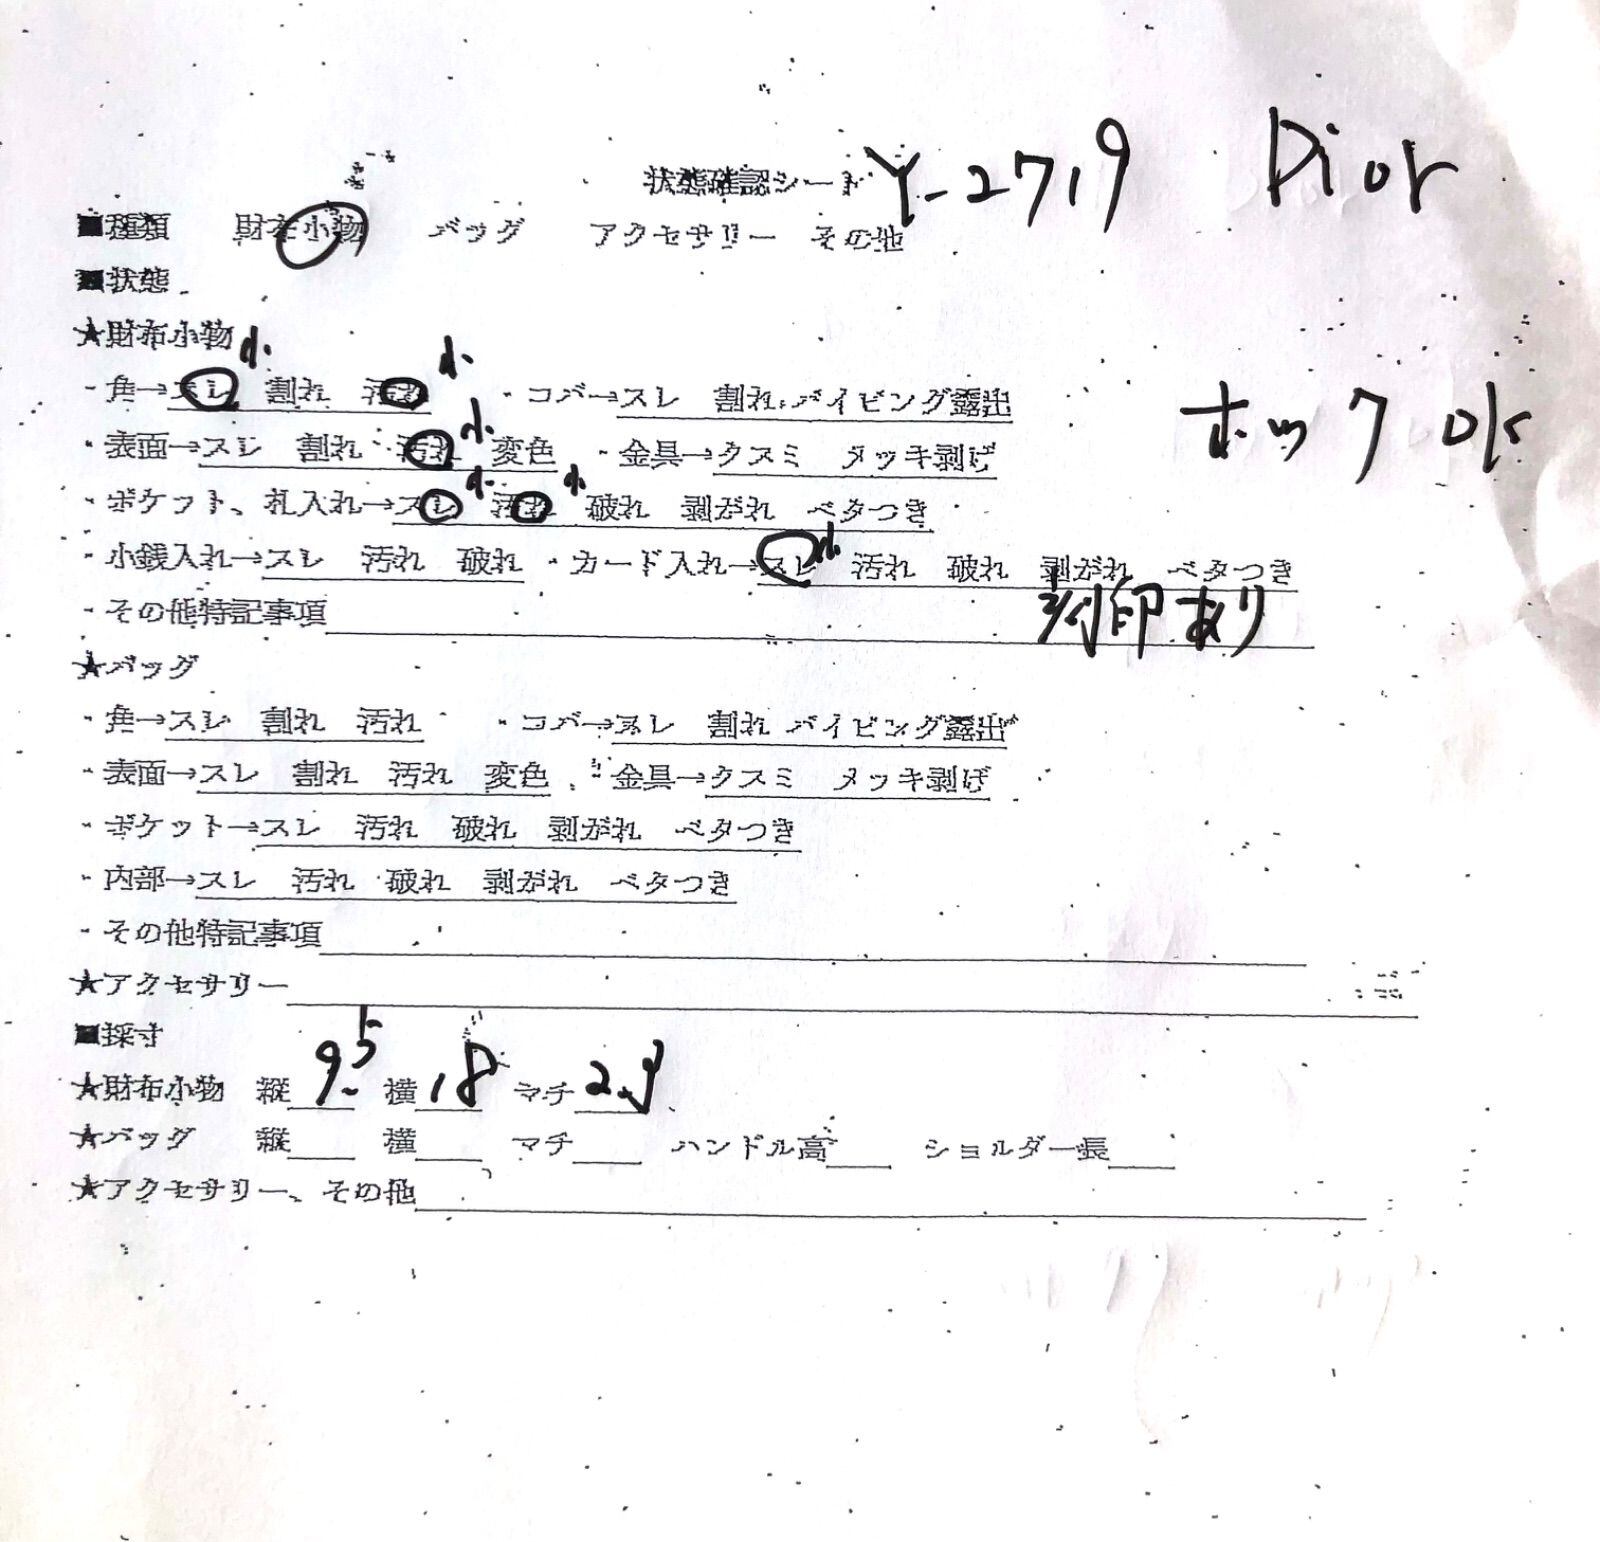 状態確認シート Y-2719 Dior
■種類 財布小物 バッグ アクセサリー その他
■状態
★財布小物
・角→スレ 小 割れ 汚れ 小 ・コバ→スレ 割れ パイピング露出
ホック OK
・表面→スレ 割れ 汚れ 小 変色 ・金具→クスミ メッキ剥げ
・ポケット、札入れ→スレ 小 汚れ 小 破れ 剥がれ ベタつき
・小銭入れ→スレ 汚れ 破れ ・カード入れ→スレ 小 汚れ 破れ 剥がれ ベタつき
・その他特記事項 刻印あり
★バッグ
・角→スレ 割れ 汚れ ・コバ→スレ 割れ パイピング露出
・表面→スレ 割れ 汚れ 変色 ・金具→クスミ メッキ剥げ
・ポケット→スレ 汚れ 破れ 剥がれ ベタつき
・内部→スレ 汚れ 破れ 剥がれ ベタつき
・その他特記事項
★アクセサリー
■採寸
★財布小物 縦 9.5 横 18 マチ
★バッグ 縦 横 マチ ハンドル高 ショルダー長
★アクセサリー、その他